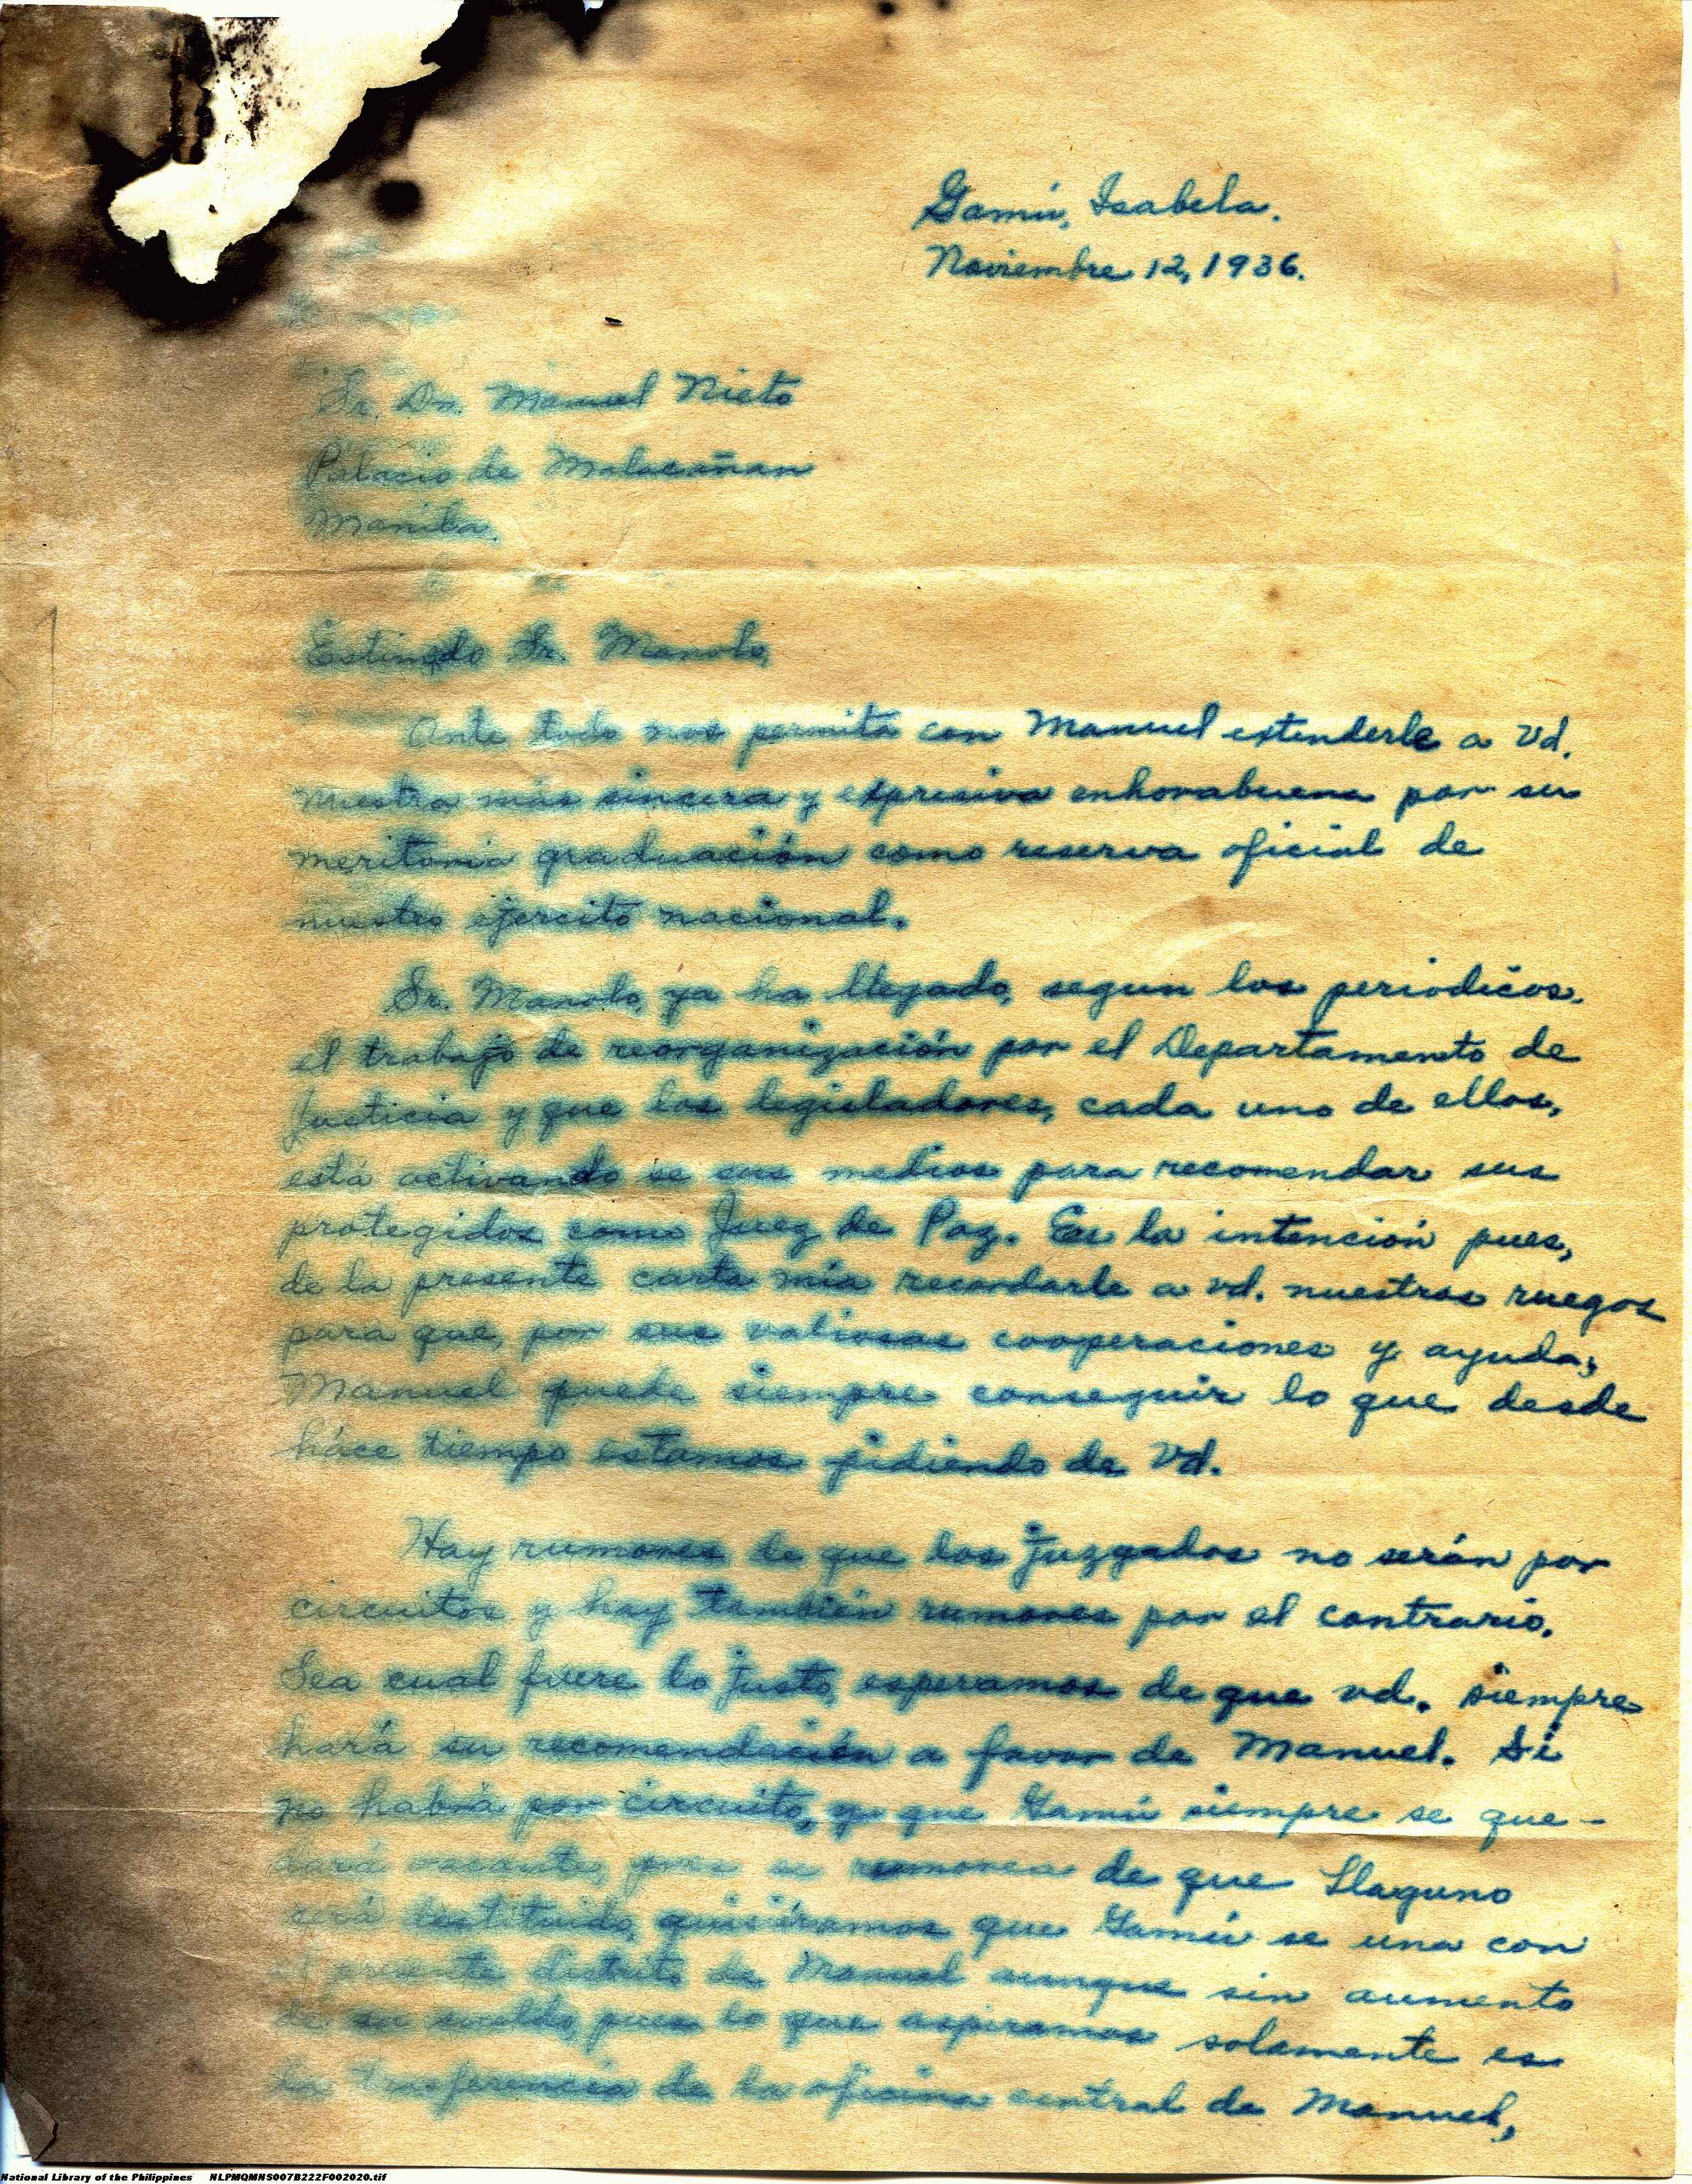 Gamú, Isabela.
Noviembre 12, 1936.
Sr. Dn. Manuel Nieto
Palacio de Malacañan
Manila.
Estimado Sr. Manolo,
Ante todo nos permita con Manuel extenderle a Vd.
nuestra más sincera y expresiva enhorabuena por su
meritoria graduación como reserva oficial de
nuestro ejercito nacional.
Sr. Manolo, ya ha llegado, segun los periodicos,
el trabajo de reorganización por el Departamento de
Justicia y que los legisladores, cada uno de ellos,
está activando se sus medios para recomendar sus
protegidos como Juez de Paz. Es la intención pues,
de la presente carta mía recordarle a vd. nuestros ruegos
para que, por sus valiosas cooperaciones y ayuda,
Manuel puede siempre conseguir lo que desde
hace tiempo estamos pidiendo de Vd.
Hay rumores de que los juzgados no serán por
circuitos y hay también rumores por el contrario.
Sea cual fuere lo justo, esperamos de que vd. siempre
hará su recomendación a favor de Manuel. Si
no habrá por circuito, ya que Gamú siempre se que-
dará vacante, pues se rumorea de que Llaguno
será destituido, quisiéramos que Gamú se una con
el presente distrito de Manuel aunque sin aumento
de su sueldo, pues lo que aspiramos solamente es
la trasferencia de la oficina central de Manuel,
National Library of the Philippines NLPMQMNS007B222F002020.tif